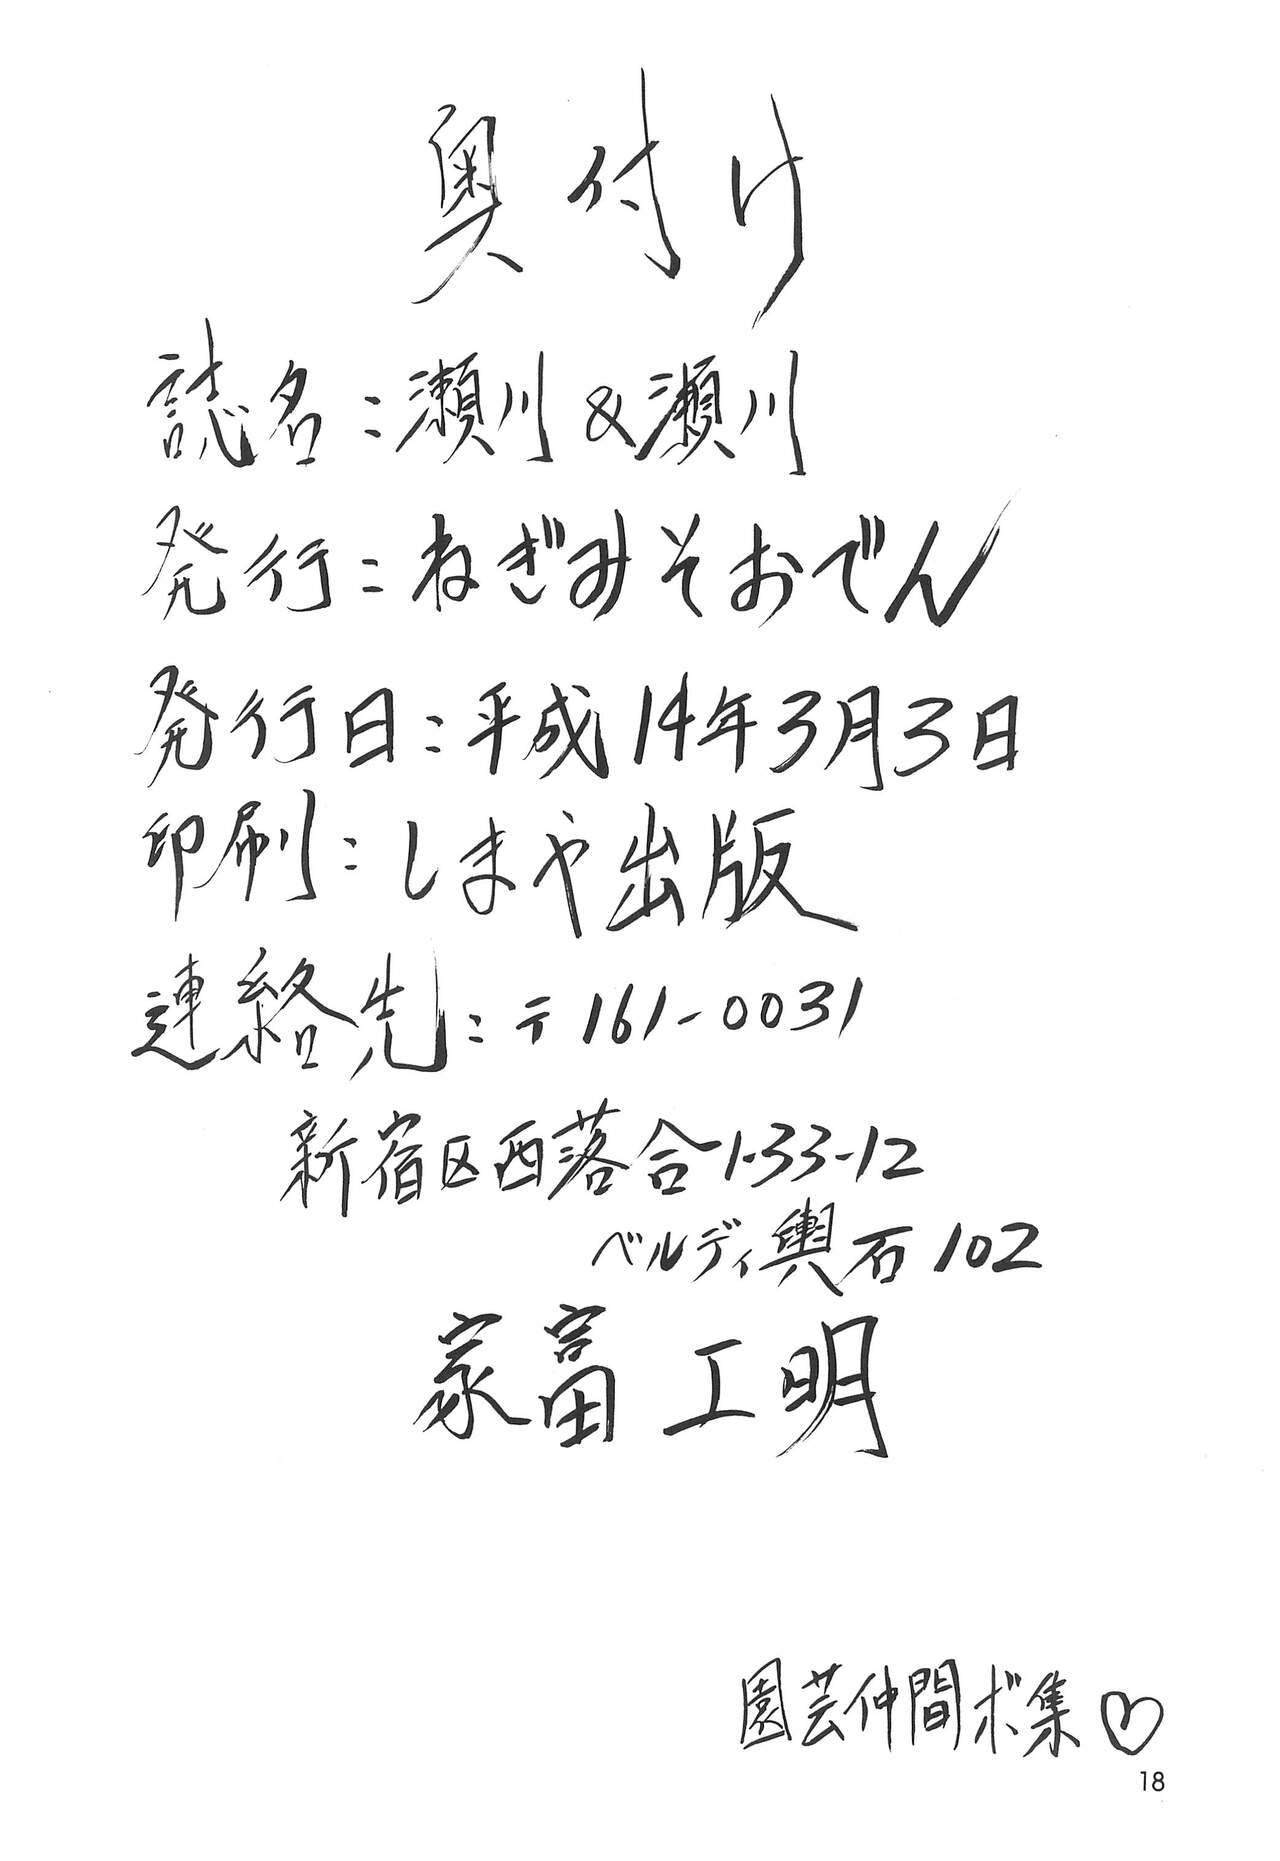 奥付け
誌名：瀬川＆瀬川
発行：ねぎみそおでん
発行日：平成14年3月3日
印刷：しまや出版
連絡先：〒161-0031
新宿区西落合1-33-12
ベルディ輿石102
家富工明
園芸仲間ボ集♡
18